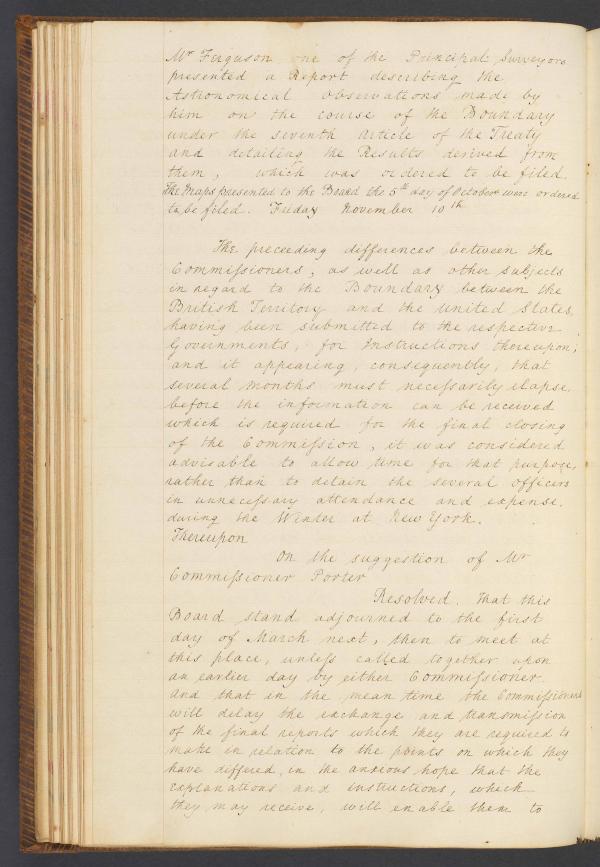 Mr Ferguson one of the Principal Surveyors
presented a Report describing the
Astronomical observations made by
him on the course of the Boundary
under the seventh article of the Treaty
and detailing the Results derived from
them, which was ordered to be filed.
The Maps presented to the Board the 5th day of October were ordered
to be filed. Friday November 10th
The preceeding differences between the
Commiſsioners, as well as other subjects
in regard to the Boundary between the
British Territory and the United States,
having been submitted to the respective
Governments, for Instructions thereupon;
and it appearing, consequently, that
several months must neceſsarily elapse,
before the information can be received
which is required for the final closing
of the Commiſsion, it was considered
advisable to allow time for that purpose,
rather than to detain the several officers
in unneceſsary attendance and expense,
during the Winter at New York.
Thereupon
On the suggestion of Mr
Commiſsioner Porter
Resolved. That this
Board stand adjourned to the first
day of March next, then to meet at
this place, unleſs called together upon
an earlier day by either Commiſsioner.
And that in the mean time the Commiſsioners
will delay the exchange and transmiſsion
of the final reports which they are required to
make in relation to the points on which they
have differed, in the anxious hope that the
explanations and instructions, which
they may receive, will enable them to